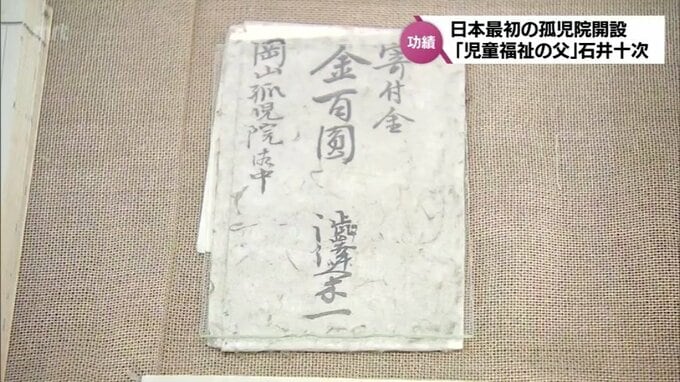 功績
日本最初の孤児院開設
「児童福祉の父」石井十次
寄付金
金百圓
岡山孤児院御中
澁澤栄一